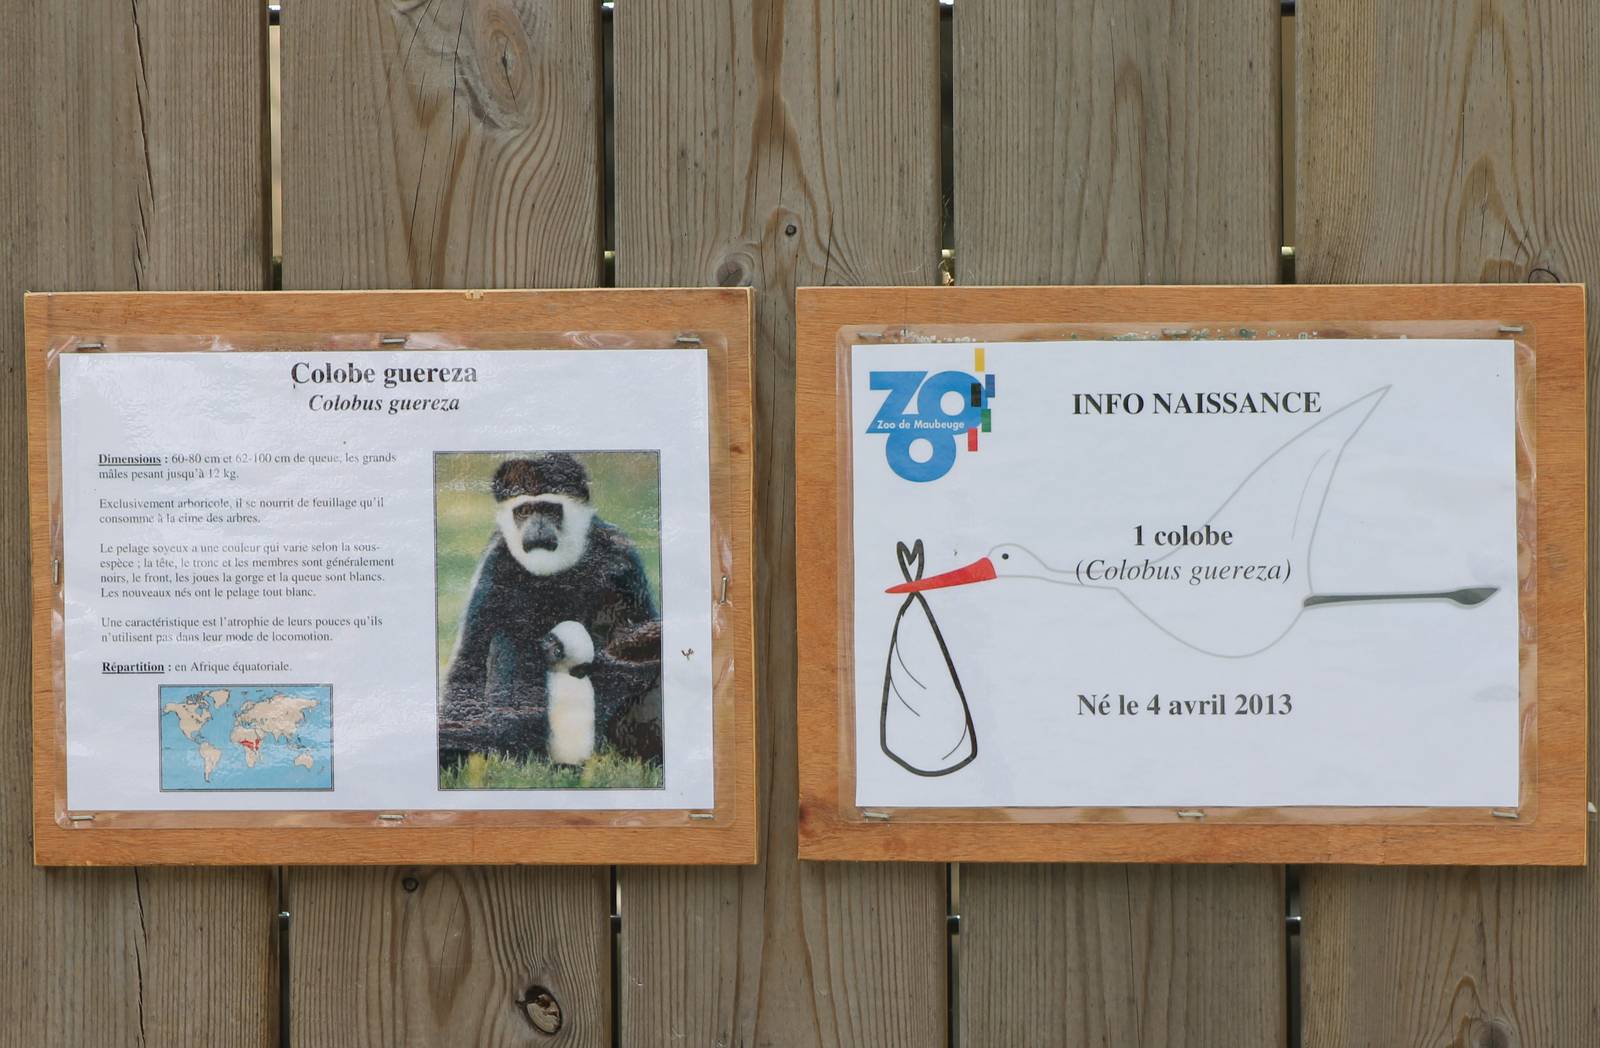 Colobe guereza
Colobus guereza
Dimensions : 60-80 cm et 62-100 cm de queue, les grands
mâles pesant jusqu'à 12 kg.
Exclusivement arboricole, il se nourrit de feuillage qu'il
consomme à la cime des arbres.
Le pelage soyeux a une couleur qui varie selon la sous-
espèce ; la tête, le tronc et les membres sont généralement
noirs, le front, les joues la gorge et la queue sont blancs.
Les nouveaux nés ont le pelage tout blanc.
Une caractéristique est l'atrophie de leurs pouces qu'ils
n'utilisent pas dans leur mode de locomotion.
Répartition : en Afrique équatoriale.
ZOO
Zoo de Maubeuge
INFO NAISSANCE
1 colobe
(Colobus guereza)
Né le 4 avril 2013